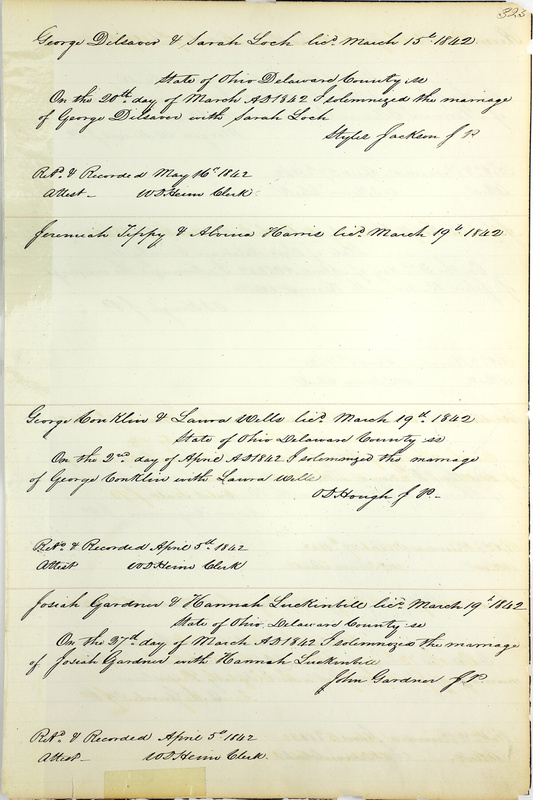 323
George Dilsaver & Sarah Loch licd. March 15th. 1842
State of Ohio Delaware County ss
On the 20th. day of March AD1842 I solemnized the marriage
of George Dilsaver with Sarah Loch
Styles Jackson J P.
Retd. & Recorded May 16th 1842
Attest – W D Heim Clerk
Jeremiah Tippy & Alvina Harris licd. March 19th. 1842
George Conklin & Laura Wells licd. March 19th. 1842
State of Ohio Delaware County ss
On the 2nd day of April AD1842 I solemnized the marriage
of George Conklin with Laura Wells
O D Hough J P. –
Retd. & Recorded April 5th. 1842
Attest W D Heim Clerk
Josiah Gardner & Hannah Luckinbill licd. March 19th 1842
State of Ohio Delaware County ss
On the 27th day of March AD1842 I solemnized the marriage
of Josiah Gardner with Hannah Luckinbill
John Gardner J P.
Retd. & Recorded April 5th 1842
Attest – W D Heim Clerk.